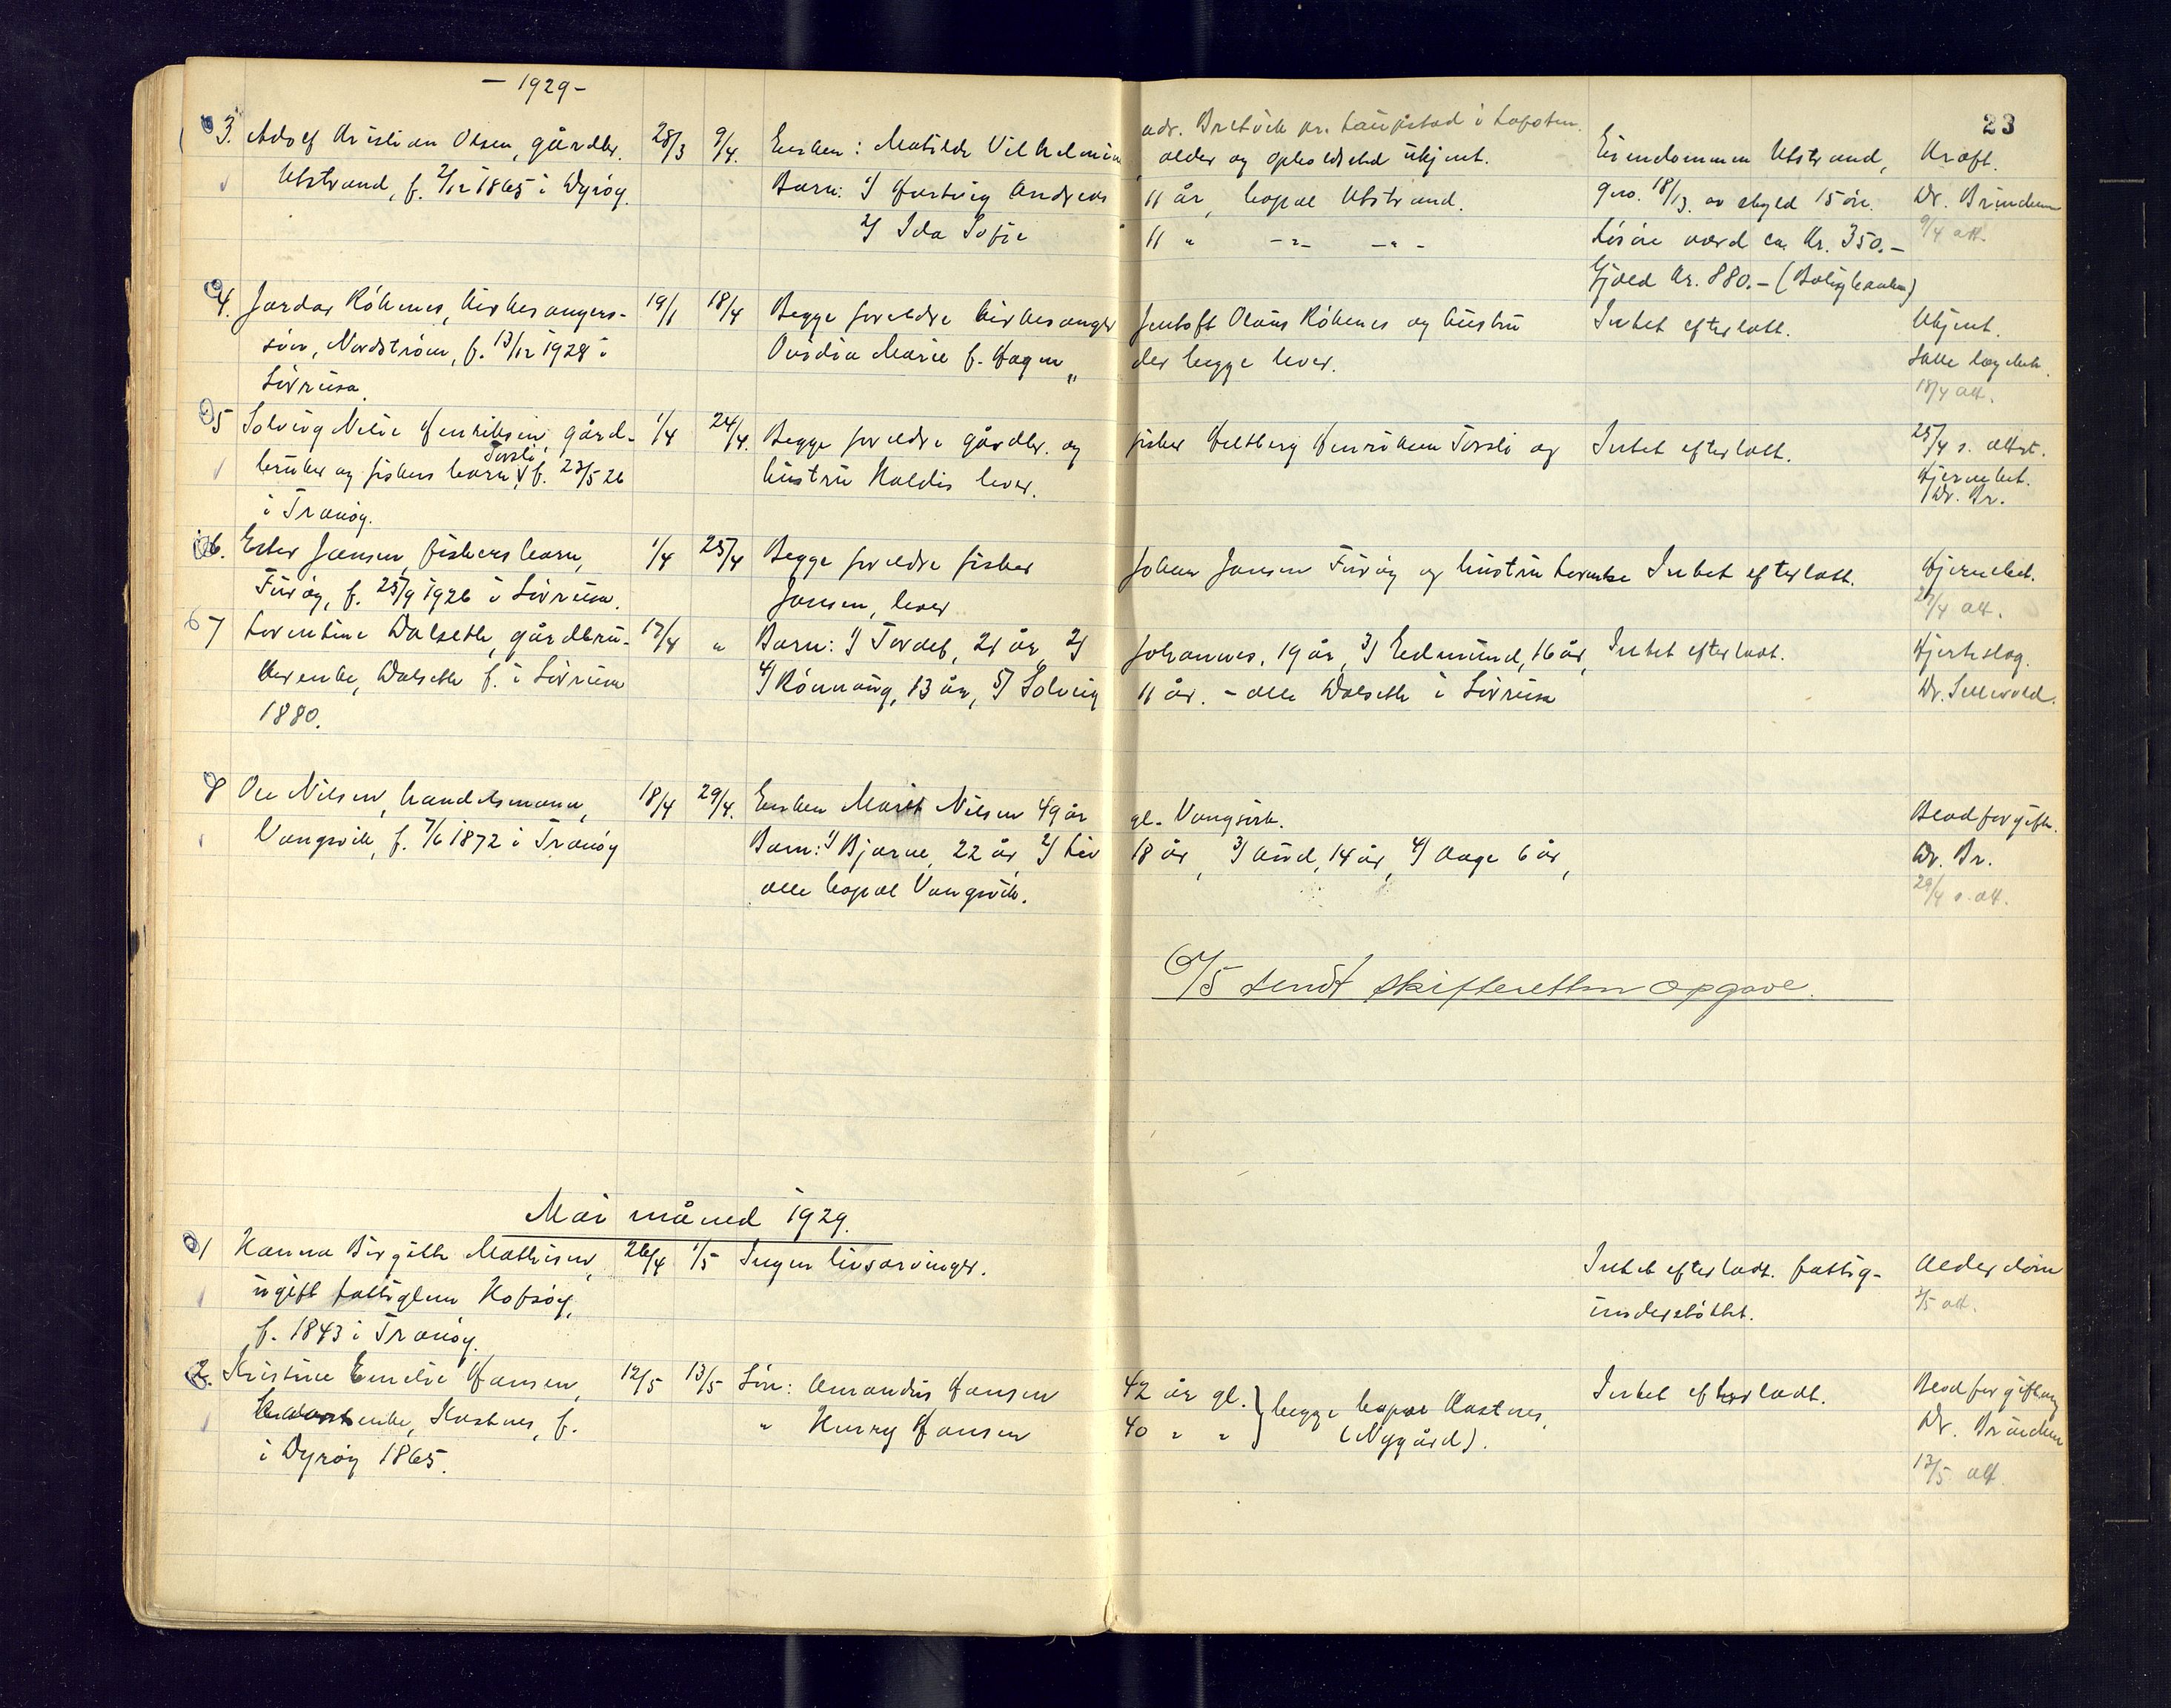 - 1929 -
23
adr. Bretvik pr. Laupstad i Lofoten.
3. Adolf Kristian Olsen, gårdbr. 28/3 9/4. Enken: Matilde Vilhelmine alder og opholdssted ukjent. Eiendommen Utstrand, Kræft.
Utstrand, f. 2/12 1865 i Dyrøy. Barn: 1/ Hartvig Andreas 11 år, bopæl Utstrand. gno. 18/13. av skyld 15 øre. Dr. Bründem
2/ Ida Sofie 11 " -"- -"- Løsøre værd ca. Kr. 350.- 9/4 att.
Gjæld Kr. 880.- (Boligbanken)
4. Jardar Röknes, kirkesanger- 19/1 18/4 Begge foreldre kirkesanger Jentoft Olaus Röknes og hustru Intet efterlatt. Ukjent.
søn, Nordstraum, f. 13/12 1928 i Ovidia Marie f. Hagen " der begge lever. Ikke lægebeh.
Sørreisa. 18/4 att.
5 Solveig Nelie Henriksen, gård- 1/4 24/4. Begge foreldre gårdbr. og fisker Heltberg Henriksen Torsli og Intet efterlatt. 25/4 s. attst.
bruker og fiskers barn, Torsli, f. 23/5 26 hustru Haldis lever. Hjernebet.
i Tranøy. Dr. Br.
6. Ester Jansen, fiskers barn, 1/4 25/4 Begge foreldre fisker Johan Jansen Furöy og hustru Lovenke Intet efterlatt. Hjernebet.
Furöy, f. 25/9 1926 i Sörreisa. Jansen, lever 27/4 att.
7 Lorentine Dalseth, gårdbru- 17/4 " Barn: 1/ Tordeb, 21 år, 2/ Johannes, 19 år, 3/ Edmund, 16 år, Intet efterladt. Hjerteslag.
kerenke, Dalseth f. i Sörreisa 4/ Rönnaug, 13 år, 5/ Solveig 11 år. - alle Dalseth i Sörreisa Dr. Sellevold.
1880.
8 Ole Nilsen, handelsmann, 18/4 29/4. Enken Marit Nilsen 49 år gl. Vangsvik. Blodforgiftn.
Vangsvik, f. 7/6 1872 i Tranöy Barn: 1/ Bjarne, 22 år, 2/ Liv 18 år, 3/ Aud, 14 år, 4/ Aage 6 år, Dr. Br.
alle bopæl Vangsvik. 29/4 s. att.
6/5 sendt skifteretten opgave.
Mai måned 1929.
1 Hanna Birgitte Mathisen, 26/4 1/5 Ingen livsarvinger. Intet efterladt. fattig- Alderdom
ugift fattiglem Hofsöy, understöttet. 2/5 att.
f. 1843 i Tranöy.
2. Kristine Emelie Hansen, 12/5 13/5 Sön: Amandus Hansen 42 år gl. } begge bopæl Kastnes, Intet efterladt. Blodforgiftning
enke, Kastnes, f. " Harry Hansen 40 " " (Nygård). Dr. Bründem
i Dyröy 1865. 13/5 att.